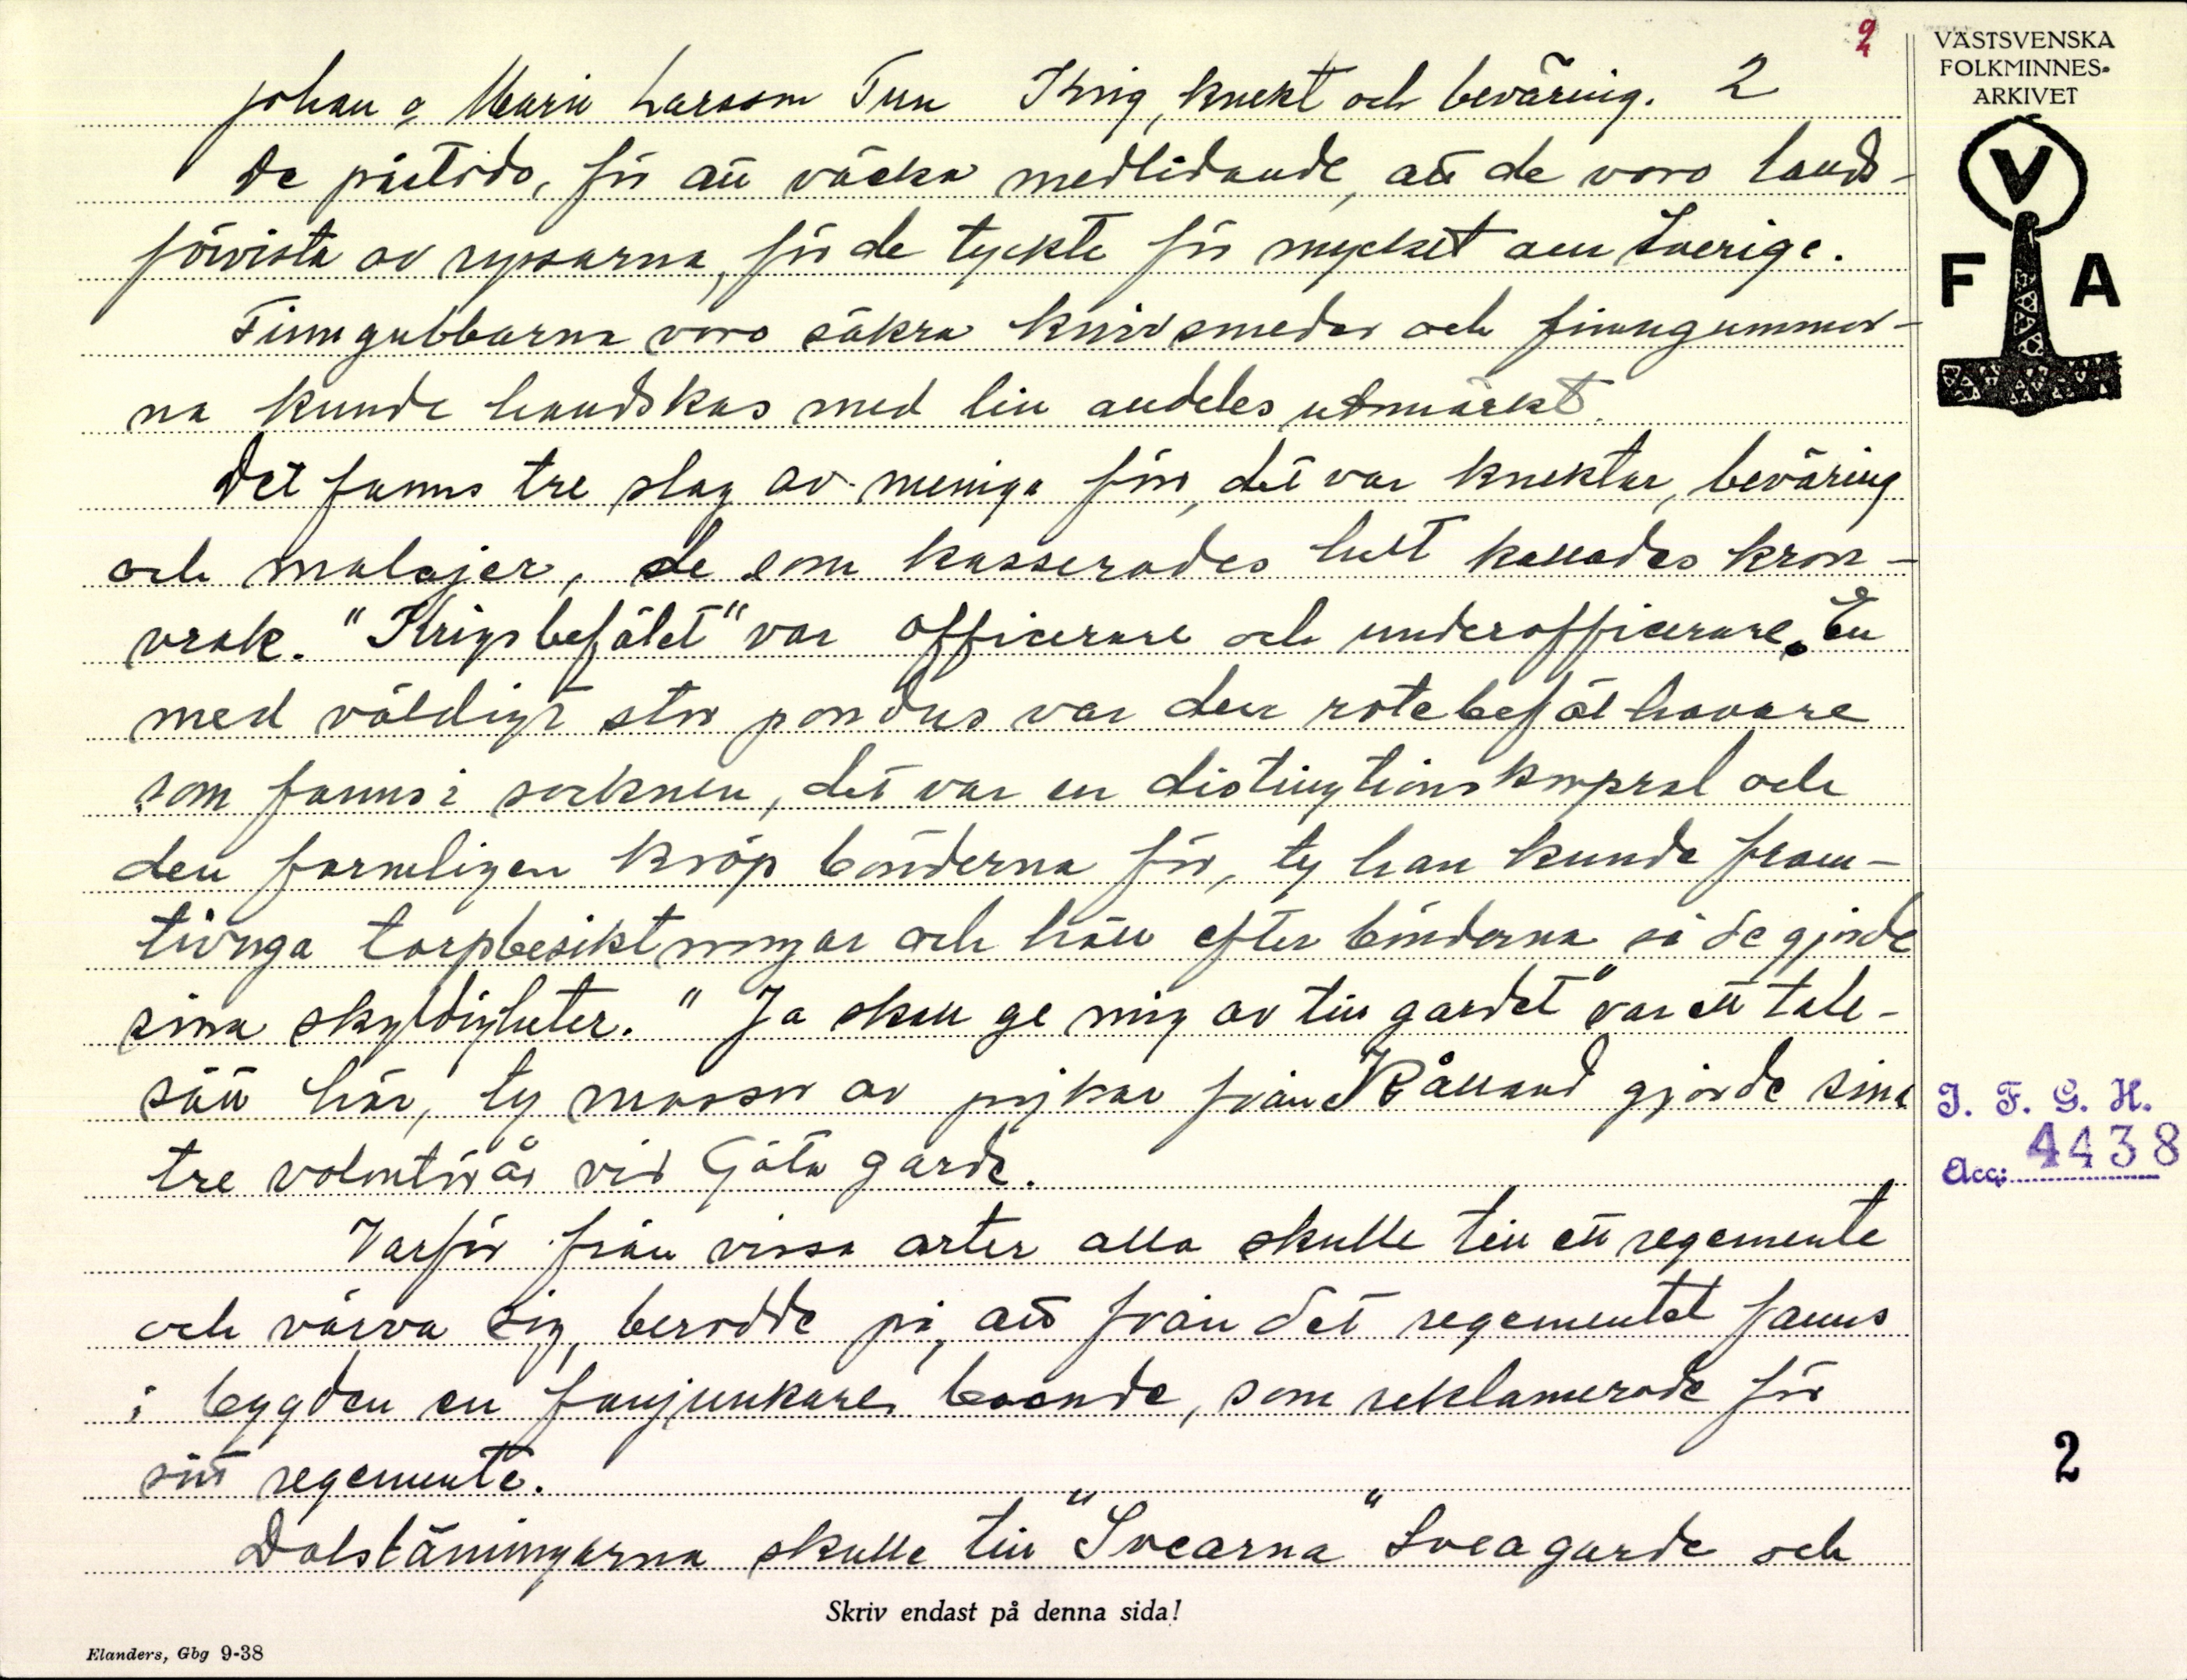 2
VÄSTSVENSKA
FOLKMINNES-
ARKIVET
V
F A
Johan o Maria Larsson Tun Krig, knekt och beväring. 2
De påstodo, för att väcka medlidande, att de voro lands-
förvista av ryssarna, för de tyckte för mycket om Sverige.
Finngubbarna voro säkra knivsmeder och finngummor-
na kunde handskas med lin andeles utmärkt.
Det fanns tre slag av meniga förr, det var knektar, beväring
och malajer, de som kasserades helt kallades kron-
vrak. "Krigsbefälet" var officerare och underofficerare. En
med väldigt stor pondus var den rotebefälhavare
som fanns i socknen, det var en distingtionskorpral och
den formligen kröp bönderna för, ty han kunde fram-
tvinga torpbesiktningar och håll efter bönderna så de gjorde
sina skyldigheter. "Ja skall ge mig av till gardet" var ett tale-
sätt här, ty massor av pojkar från Kålland gjorde sina
tre volontörår vid Göta garde.
Varför från vissa orter alla skulle till ett regemente
och värva sig, berodde på, att från det regementet fanns
i bygden en fanjunkare boende, som reklamerade för
sitt regemente.
Dalslänningarna skulle till "Svearna" Svea garde och
I. F. G. H.
Acc: 4438
2
Skriv endast på denna sida!
Elanders, Gbg 9-38